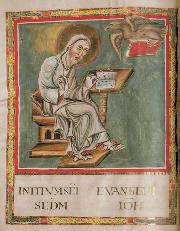 INITIVM SCI EVANGELI
SEDM IOH